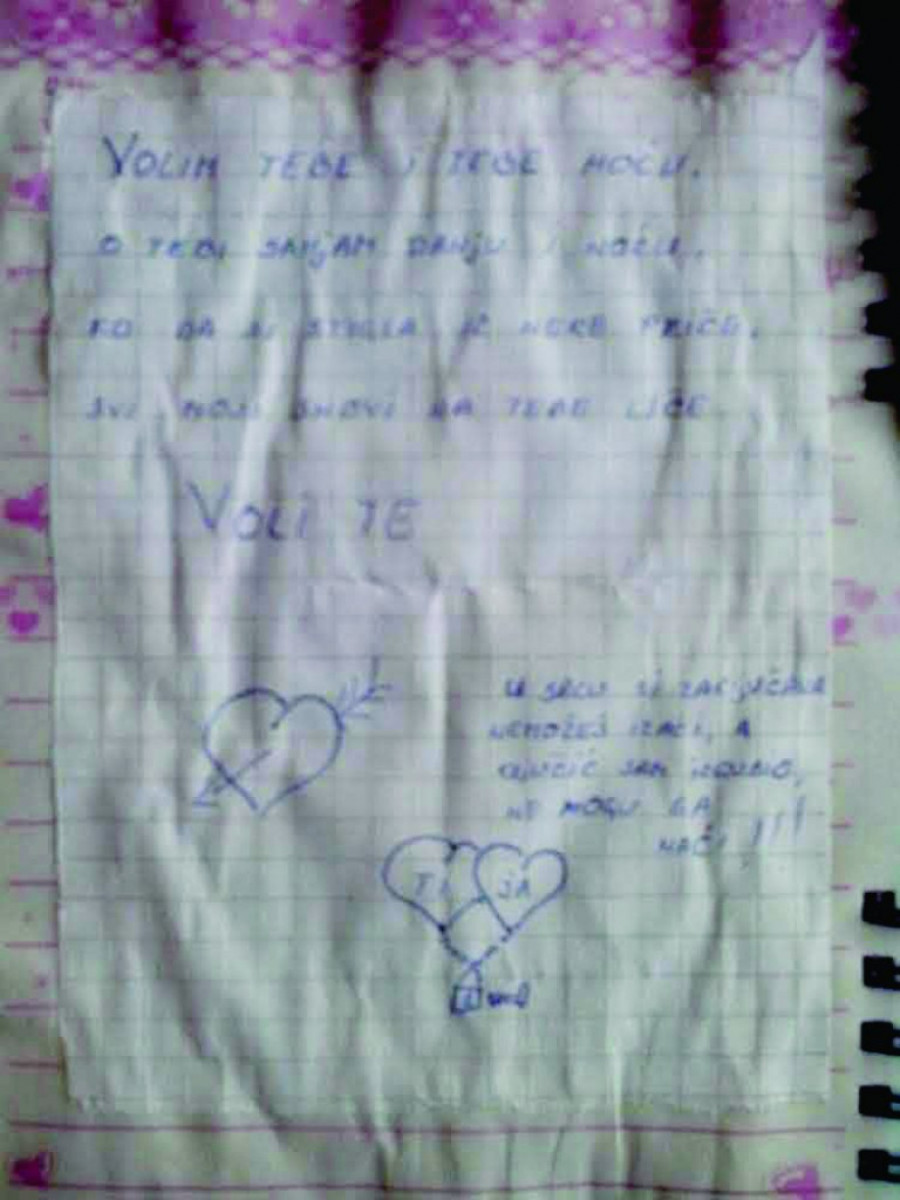 VOLIM TEBE I TEBE HOĆU.
O TEBI SANJAM DANJU I NOĆU.
KO DA SI STIGLA IZ NEKE PRIČE.
SVI MOJI SNOVI NA TEBE LIČE
VOLI TE
U SRCU SI ZAKLJUČANA
NEMOŽEŠ IZAĆI, A
KLJUČIĆ SAM IZGUBIO,
NE MOGU GA
NAĆI !!!
TI JA